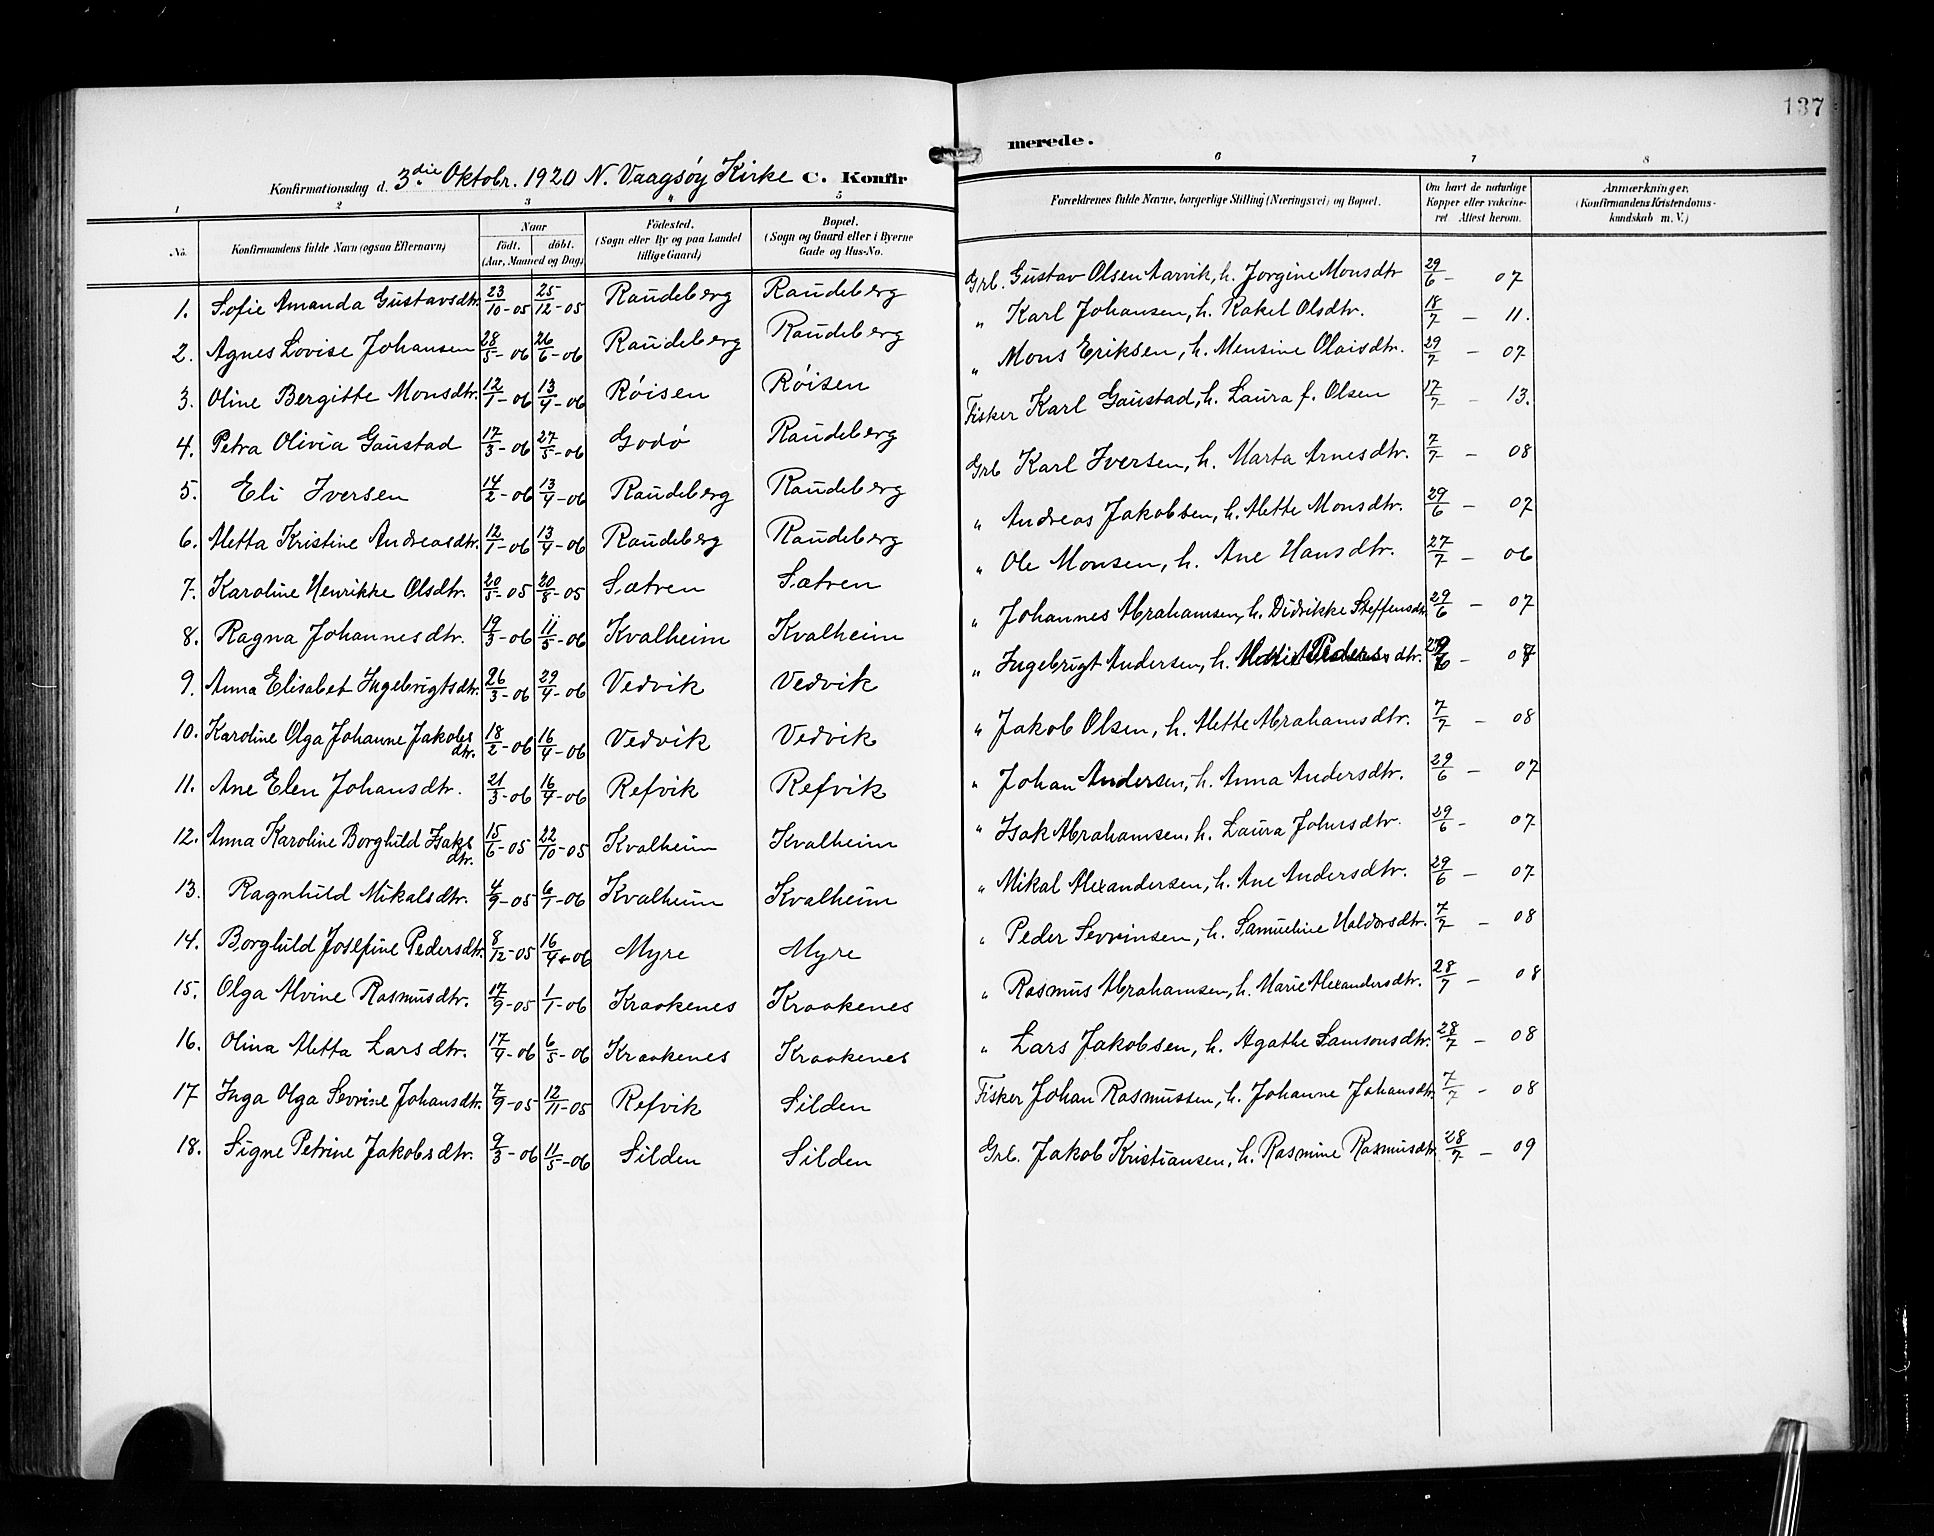 137
Konfirmationsdag d. 3die Oktobr. 1920 N. Vaagsøy Kirke C. Konfir
merede.
1 2 3 4 5 6 7 8
No. Konfirmandens fulde Navn (ogsaa Efternavn) Naar født. døbt. (Aar, Maaned og Dag) Fødested. (Sogn eller By og paa Landet tillige Gaard) Bopæl. (Sogn og Gaard eller i Byerne Gade og Hus-No. Forældrenes fulde Navne, borgerlige Stilling (Næringsvei) og Bopæl. Om havt de naturlige Kopper eller vakcineret Attest herom. Anmærkninger. (Konfirmandens Kristendomskundskab m. V.)
1. Sofie Amanda Gustavsdtr. 23/10-05 25/12-05 Raudeberg Raudeberg Grb. Gustav Olsen Aarvik, h. Jorgine Monsdtr 29/6 - 07
2. Agnes Lovise Johansen 28/5-06 26/6-06 Raudeberg Raudeberg " Karl Johansen, h. Rakel Olsdtr. 18/7 - 11.
3. Oline Bergitte Monsdtr. 12/1-06 13/4-06 Røisen Røisen " Mons Eriksen, h. Mensine Olaisdtr. 29/7 - 07
4. Petra Olivia Gaustad 17/3-06 27/5-06 Godø Raudeberg Fisker Karl Gaustad, h. Laura f. Olsen 17/7 - 13.
5. Eli Iversen 14/2-06 13/4-06 Raudeberg Raudeberg Grb Karl Iversen, h. Marta Arnesdtr. 7/7 - 08
6. Aletta Kristine Andreasdtr. 12/1-06 13/4-06 Raudeberg Raudeberg " Andreas Jakobsen, h. Alette Monsdtr. 29/6 - 07
7. Karoline Henrikke Olsdtr. 20/5-05 20/8-05 Sætren Sætren " Ole Monsen, h. Ane Hansdtr. 27/7 - 06
8. Ragna Johannesdtr. 19/3-06 11/5-06 Kvalheim Kvalheim " Johannes Abrahamsen, h. Didrikke Steffensdtr 29/6 - 07
9. Anna Elisabet Ingebrigtsdtr. 26/3-06 29/4-06 Vedvik Vedvik " Ingebrigt Andersen, h. dtr.
10. Karoline Olga Johanne Jakobsdtr. 18/2-06 16/4-06 Vedvik Vedvik " Jakob Olsen, h. Alette Abrahamsdtr. 7/7 - 08
11. Ane Elen Johansdtr. 21/3-06 16/4-06 Refvik Refvik " Johan Andersen, h. Anna Andersdtr. 29/6 - 07
12. Anna Karoline Borghild Isaksdtr. 15/6-05 22/10-05 Kvalheim Kvalheim " Isak Abrahamsen, h. Laura Johnsdtr. 29/6 - 07
13. Ragnhild Mikalsdtr. 4/9-05 6/1-06 Kvalheim Kvalheim " Mikal Alexandersen, h. Ane Andersdtr. 29/6 - 07
14. Borghild Josefine Pedersdtr. 8/12-05 16/4-06 Myre Myre " Peder Sevrinsen, h. Samueline Haldorsdtr. 7/7 - 08
15. Olga Alvine Rasmusdtr. 17/9-05 1/1-06 Kraakenes Kraakenes " Rasmus Abrahamsen, h. Marie Alexandersdtr. 28/7 - 08
16. Olina Aletta Larsdtr. 17/4-06 6/5-06 Kraakenes Kraakenes " Lars Jakobsen, h. Agathe Samsonsdtr. 28/7 - 08
17 Inga Olga Sevrine Johansdtr. 7/9-05 12/11-05 Refvik Silden Fisker Johan Rasmussen, h. Johanne Johansdtr 7/7 - 08
18. Signe Petrine Jakobsdtr. 9/3-06 11/5-06 Silden Silden Grb. Jakob Kristiansen, h. Rasmine Rasmusdtr. 28/7 - 09